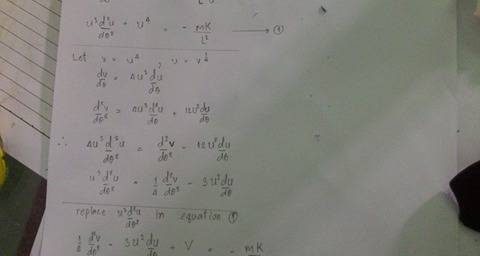 dθ² L²u
u³ d²u/dθ² + u⁴ = - mK/L² → ①
Let v = u⁴ u = v^¼
dv/dθ = 4u³ du/dθ
d²v/dθ² = 4u³ d²u/dθ² + 12u² du/dθ
∴ 4u³ d²u/dθ² = d²v/dθ² - 12u² du/dθ
u³ d²u/dθ² = 1/4 d²v/dθ² - 3u² du/dθ
replace u³ d²u/dθ² in equation ①
1/4 d²v/dθ² - 3u² du/dθ + V = - mK